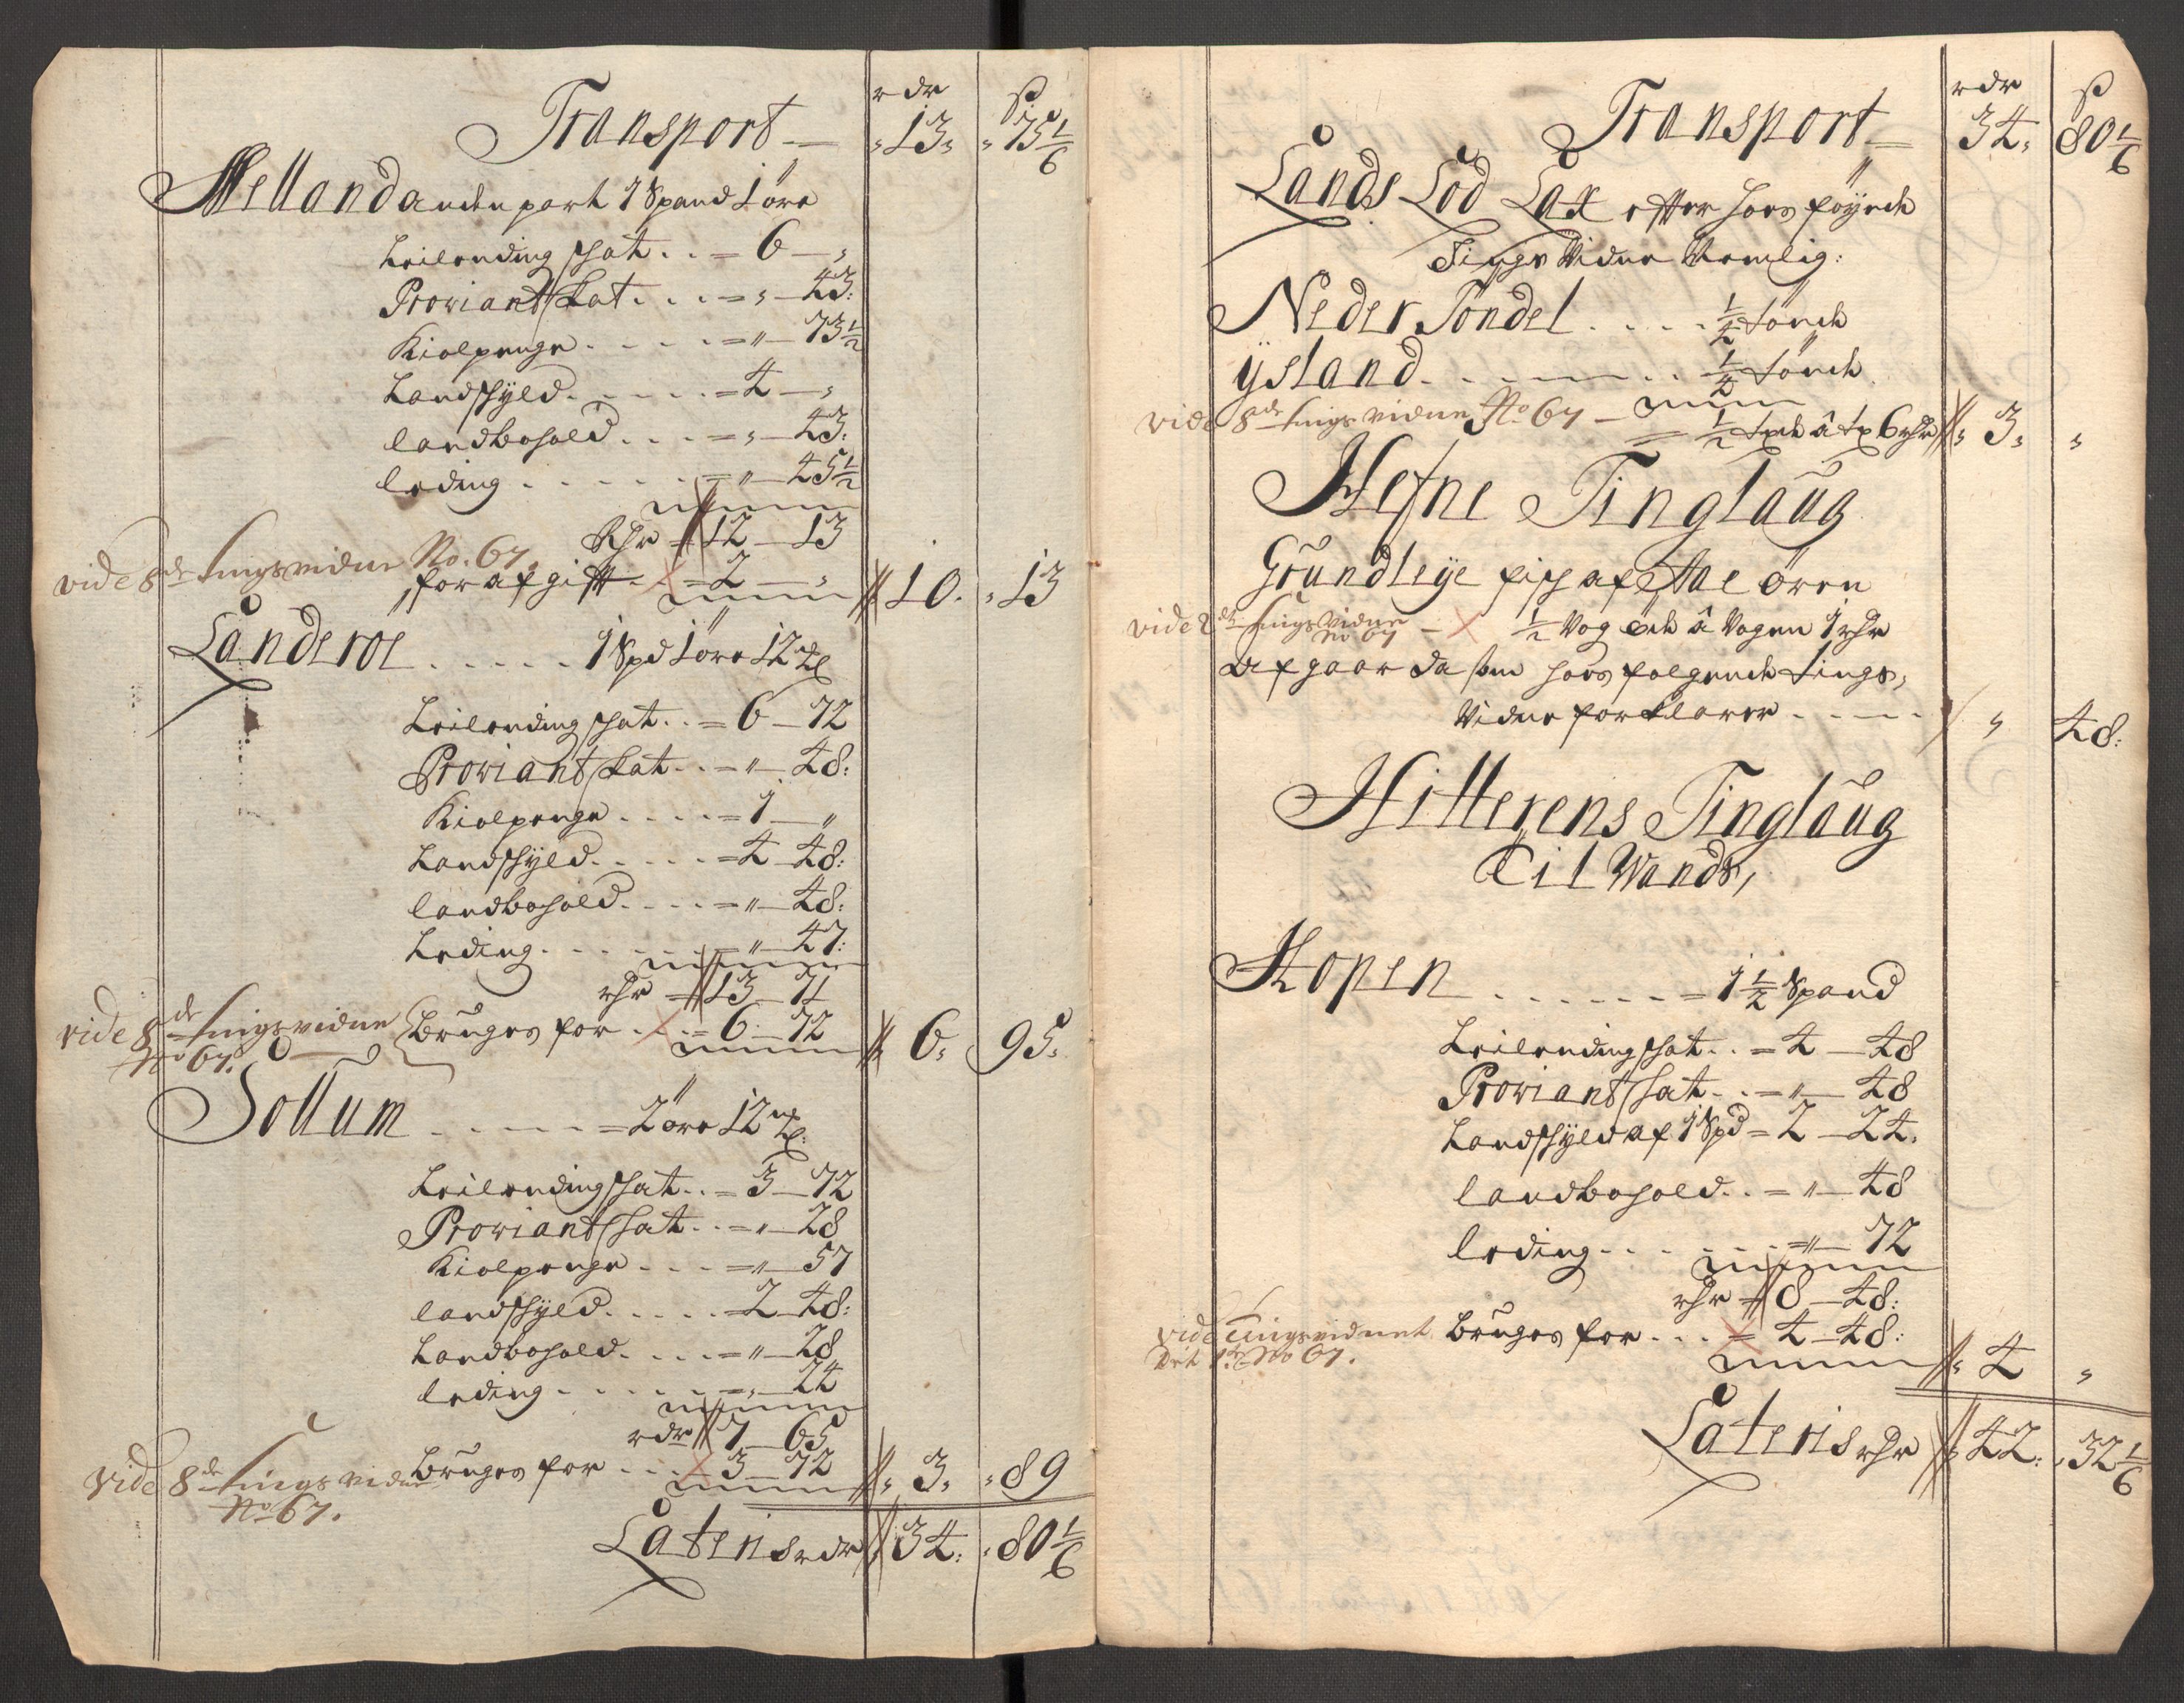 rdr ß
Transport — 13 " 75 1/6
Melland anden part 1 Spand 1 öre
Leilending schat . . = 6 — "
Proviant Skat . . . = " — 43:
Kiølpenge . . . . = " — 73 1/2
Landschyld . . . . . = 4 — "
landbohold . . . = " — 43:
leding . . . . . = " — 45 1/2
Rdr 12 — 13
vide 8de tingsvidne No. 67.
for afgift . = 2 — " 10. " 13
Landeroe . . . . . 1 Spd 1 öre 12 ml
Leilending schat . . = 6 — 72
Proviant Skat . . = " — 48:
Kiolpenge . . . . = 1 — "
Landschyld . . . . . = 4 — 48:
landbohold . . . . = " — 48:
Leding . . . . . = " — 47:
rdr 13 — 71
vide 8de tingsvidne No 67.
Bruges for . . . = 6 — 72 6. 95.
Sollum . . . . = 2 öre 12 ml:
Leilending schat . . = 3 — 72
Proviant schat . . = " — 28
Kiolpenge . . . = " — 57
landschyld . . . . . 2 — 48:
Landbohold . . . . = " — 28
leding . . . . . = " — 24
rdr 7 — 65
Bruges for . . . 3 — 72 3. " 89
vide 8de tings vidne
No 67.
Lateris rdr 34: " 80 1/6
rdr ß
Transport — 34. 80 1/6
Lands Lod Lax efter hoes föyede
Tings Vidne Nemlig:
Neder Töndel . . . . 1/4 tönde
ÿsland . . . . . 1/4 tönde
vide 8de tings vidne No 67 — 1/2 tde â td 6 rdr 3. "
Hefne Tinglaug
Grundleye fisch af Aae ören
vide 2de tings vidne No 67 — 1/2 Vog â Vogen 1 rdr
afgaar da som hoes følgende tings,
Vidne forklarer . . . . " 48:
Hitterens Tinglaug
Til Wands,
Hopen . . . . . . = 1 1/2 Spand
Leilending schat . . = 4 — 48
Proviant schat . . = " — 48
Landschyld af 1 Spd = 2 — 24.
landbohold . . = " — 48
leding . . . . . = " — 72
rdr 8 — 48:
vide tingsvidnet Det 1te No 67.
Bruges for . . . = 4 — 48: 4 "
Lateris rdr 42. " 32 1/6